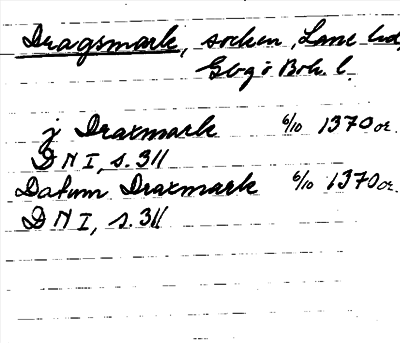 Dragsmark, socken, Lane hd,
Gbg o Boh. l.
j Draxmark 6/10 1370 or.
D N I, s. 311
Datum Draxmark 6/10 1370 or.
D N I, s. 311